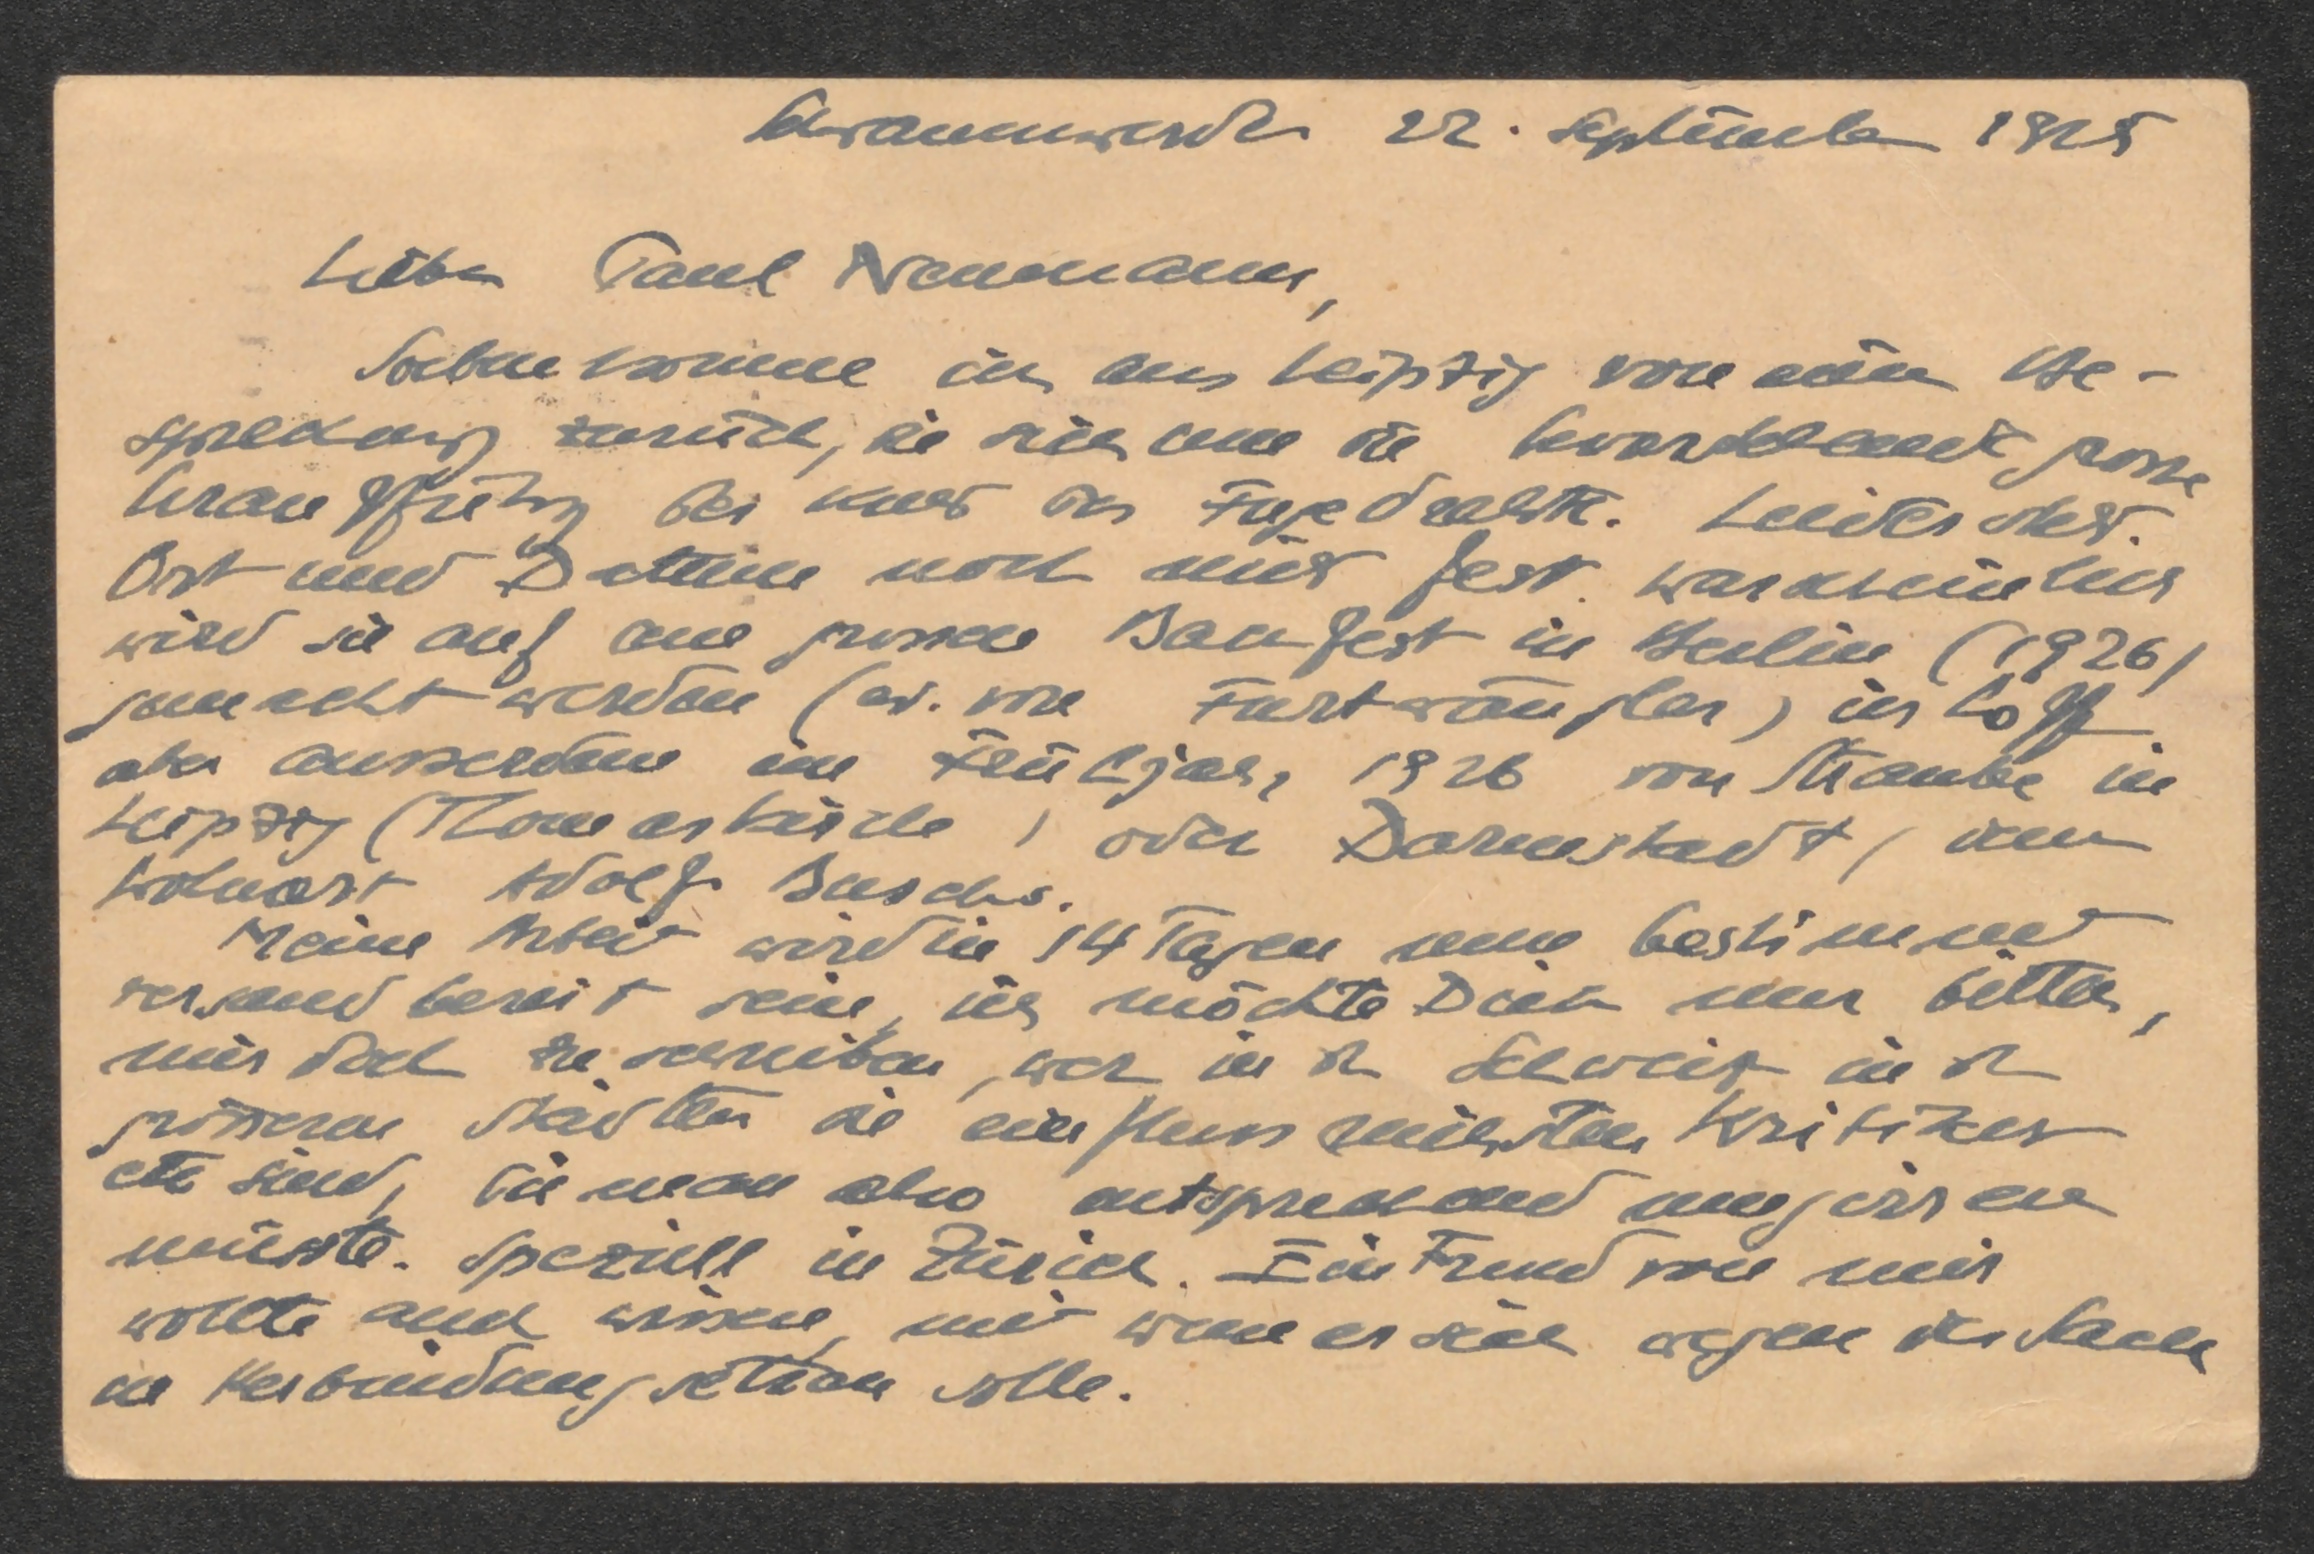 Schwanenwerder 22. September 1925
Lieber Paul Neumann,
Soeben komme ich aus Leipzig von einer Be-
sprechung zurück, die sich um die bevorstehende grosse
Uraufführung der Kunst der Fuge drehte. Leider steht
Ort und Datum noch nicht fest. Warscheinlich
wird sie auf dem grossen Bachfest in Berlin (1926)
gemacht werden (ev. von Furtwängler) ich hoffe
aber ausserdem im Frühjahr 1926 von Straube in
Leipzig (Thomaskirche) oder Darmstadt, dem
Wohnort Adolf Buschs.
Meine Arbeit wird in 14 Tagen nun bestimmt
versandbereit sein, ich möchte Dich nur bitten,
mir doch zu schreiben, wer in der Schweiz in den
grösseren Städten die einflussreichsten Kritiker
etc sind, die man also entsprechend
müsste. Speziell in Zürich. Ein Freund von mir
wollte auch wissen, mit wem er sich wegen der Sache
in Verbindung setzen solle.